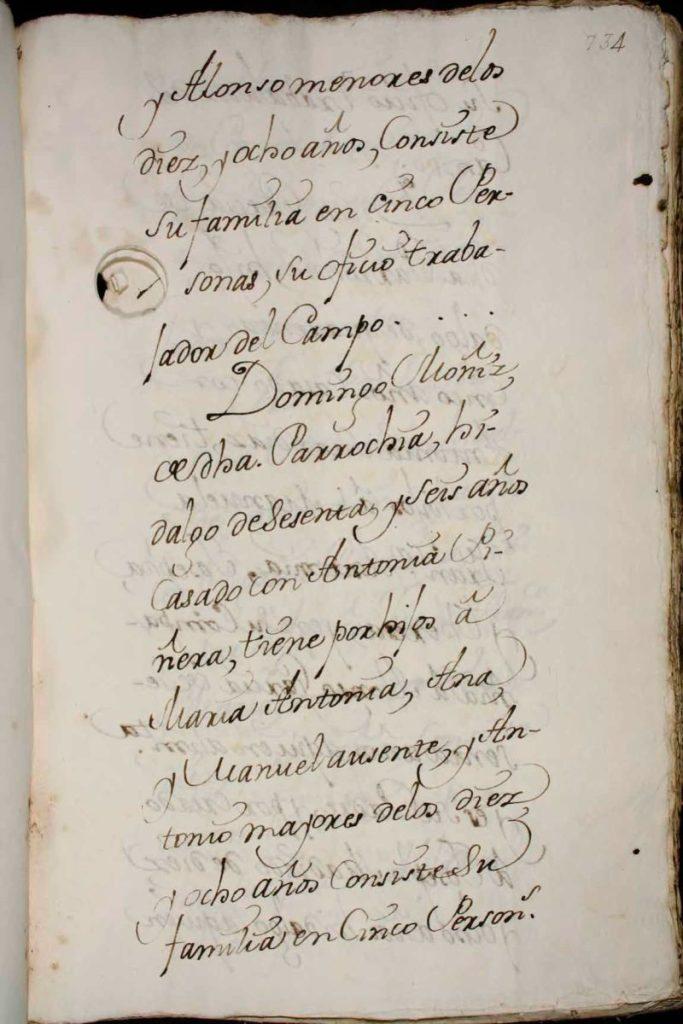 734
y Alonso menores de los
diez, y ocho años, Consiste
su familia en cinco Per-
sonas, su oficio traba-
jador del Campo.
Domingo Moñiz,
de dha. Parrochia, hi-
dalgo de Sesenta, y seis años
Casado con Antonia Pi-
ñera, tiene por hijos â
Maria Antonia, Ana,
y Manuel ausente, y An-
tonio mayores de los diez,
y ocho años Consiste Su
familia en Cinco Persons.